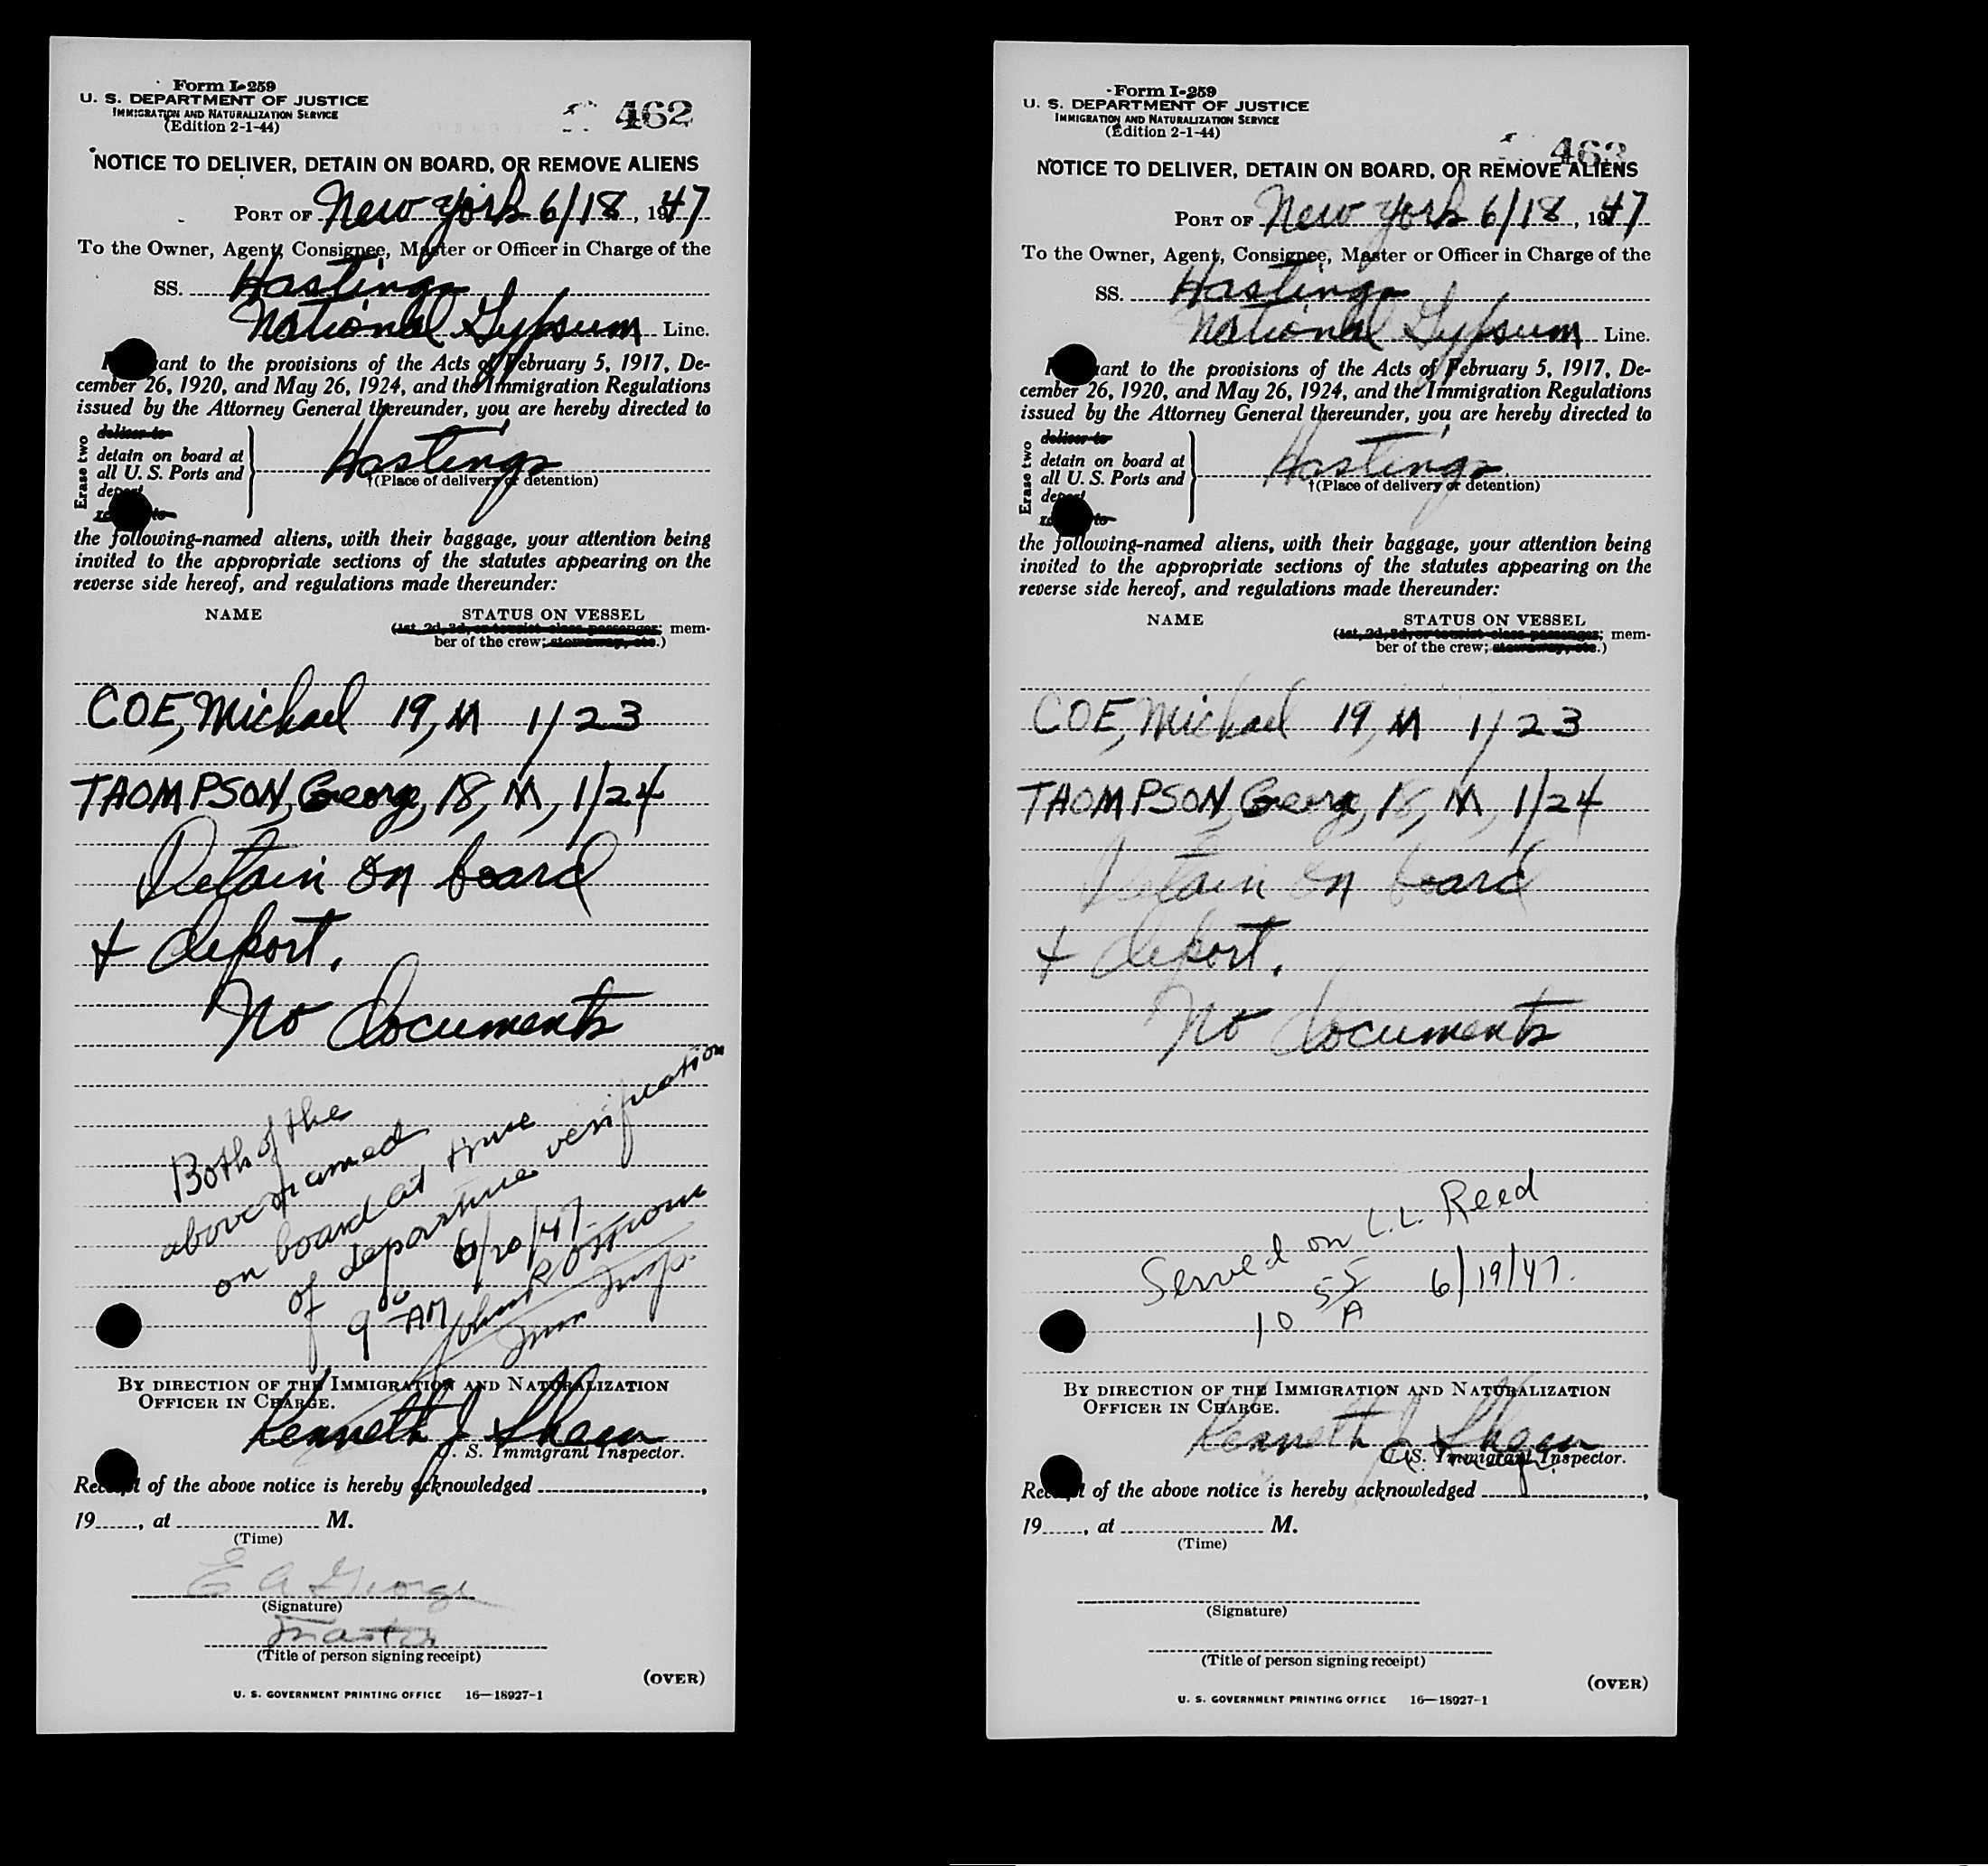 Form I-259
U. S. DEPARTMENT OF JUSTICE
IMMIGRATION AND NATURALIZATION SERVICE
(Edition 2-1-44)
462
NOTICE TO DELIVER, DETAIN ON BOARD, OR REMOVE ALIENS
PORT OF New York 6/18, 1947
To the Owner, Agent, Consignee, Master or Officer in Charge of the
SS. Hastings
National Gypsum Line.
ant to the provisions of the Acts of February 5, 1917, De-
cember 26, 1920, and May 26, 1924, and the Immigration Regulations
issued by the Attorney General thereunder, you are hereby directed to
Erase two
deliver to
detain on board at
all U. S. Ports and
deport
to
Hastings
†(Place of delivery or detention)
the following-named aliens, with their baggage, your attention being
invited to the appropriate sections of the statutes appearing on the
reverse side hereof, and regulations made thereunder:
NAME STATUS ON VESSEL
(1st, 2d, 3d, or tourist class passenger; mem-
ber of the crew; stowaway, etc.)
COE, Michael 19, M 1/23
THOMPSON, George, 18, M, 1/24
Detain on board
+ deport.
No documents
Both of the
above named
on board at time
of departure verification
6/20/47
9 00 AM John R
Imm Insp.
BY DIRECTION OF THE IMMIGRATION AND NATURALIZATION
OFFICER IN CHARGE.
Kenneth J Shean
U. S. Immigrant Inspector.
Receipt of the above notice is hereby acknowledged ,
19 , at M.
(Time)
E A George
(Signature)
Master
(Title of person signing receipt)
(OVER)
U. S. GOVERNMENT PRINTING OFFICE 16—18927-1
Form I-259
U. S. DEPARTMENT OF JUSTICE
IMMIGRATION AND NATURALIZATION SERVICE
(Edition 2-1-44)
463
NOTICE TO DELIVER, DETAIN ON BOARD, OR REMOVE ALIENS
PORT OF New York 6/18, 1947
To the Owner, Agent, Consignee, Master or Officer in Charge of the
SS. Hastings
National Gypsum Line.
ant to the provisions of the Acts of February 5, 1917, De-
cember 26, 1920, and May 26, 1924, and the Immigration Regulations
issued by the Attorney General thereunder, you are hereby directed to
Erase two
deliver to
detain on board at
all U. S. Ports and
deport
to
Hastings
†(Place of delivery or detention)
the following-named aliens, with their baggage, your attention being
invited to the appropriate sections of the statutes appearing on the
reverse side hereof, and regulations made thereunder:
NAME STATUS ON VESSEL
(1st, 2d, 3d, or tourist class passenger; mem-
ber of the crew; stowaway, etc.)
COE, Michael 19, M 1/23
THOMPSON, George, 18, M, 1/24
Detain on board
+ deport.
No documents
Served on L.L. Reed
10 55 A 6/19/47.
BY DIRECTION OF THE IMMIGRATION AND NATURALIZATION
OFFICER IN CHARGE.
Kenneth J Shean
U. S. Immigrant Inspector.
Receipt of the above notice is hereby acknowledged ,
19 , at M.
(Time)
(Signature)
(Title of person signing receipt)
(OVER)
U. S. GOVERNMENT PRINTING OFFICE 16—18927-1